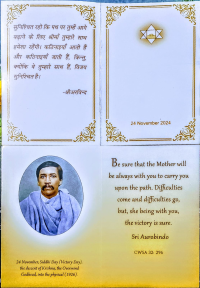 सुनिश्चित रहो कि पथ पर तुम्हें आगे
बढ़ाने के लिए श्रीमाँ तुम्हारे साथ
हमेशा रहेंगी। कठिनाइयाँ आती हैं
और कठिनाइयाँ जाती हैं, किन्तु,
क्योंकि वे तुम्हारे साथ हैं, विजय
सुनिश्चित है।
-श्रीअरविन्द
24 November 2024
Be sure that the Mother will
be always with you to carry you
upon the path. Difficulties
come and difficulties go,
but, she being with you,
the victory is sure.
Sri Aurobindo
CWSA 32: 296
24 November, Siddhi Day (Victory Day),
the descent of Krishna, the Overmind
Godhead, into the physical (1926).